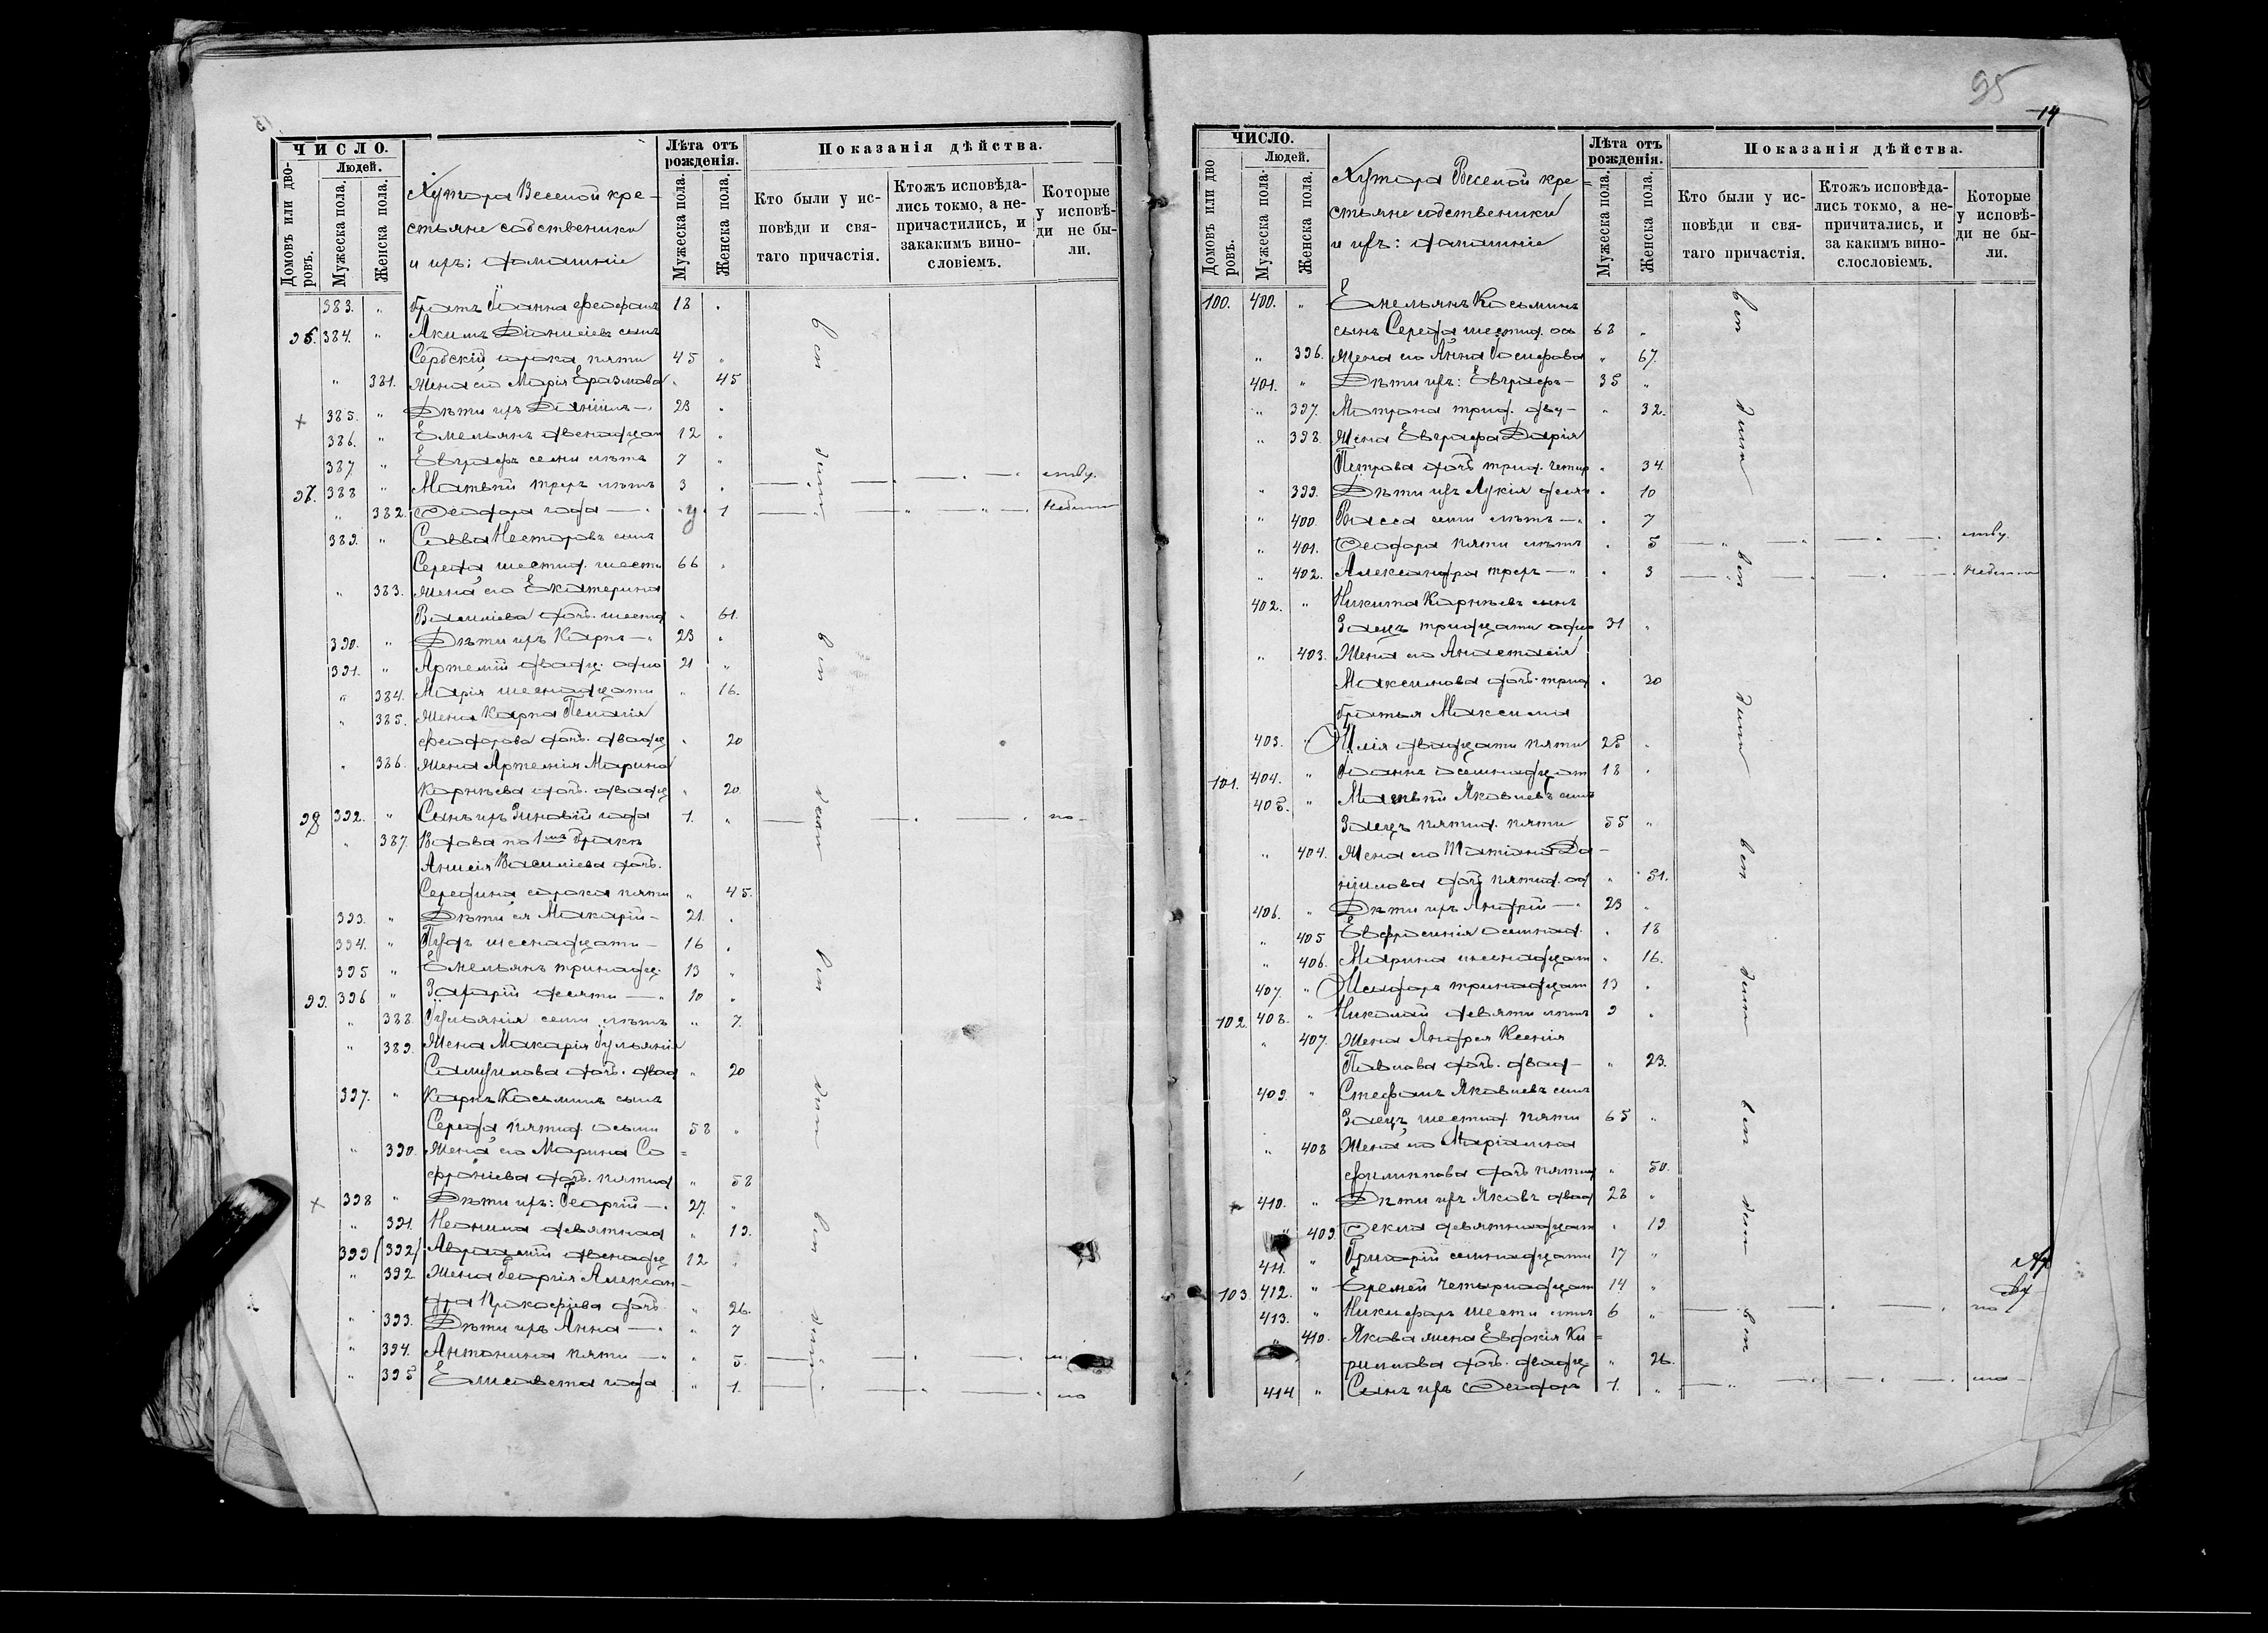 ЧИСЛО.
Домовъ или дворовъ.
Людей.
Мужеска пола.
Женска пола.
Хутора Веселой кре-
стьяне собственики
и ихъ: домашніе
Лѣта отъ рожденія.
Мужеска пола.
Женска пола.
Показанія дѣйства.
Кто были у ис-
повѣди и свя-
таго причастія.
Ктожъ исповѣда-
лись токмо, а не-
причастились, и
закакимъ вино-
словіемъ.
Которые
у исповѣ-
ди не бы-
ли.
383. " братъ Іоанна Феофанъ 18 "
96. 384. " Акимъ Діонисіевъ сынъ
Сербскій сорока пяти 45 "
" 381. Жена его Марія Еразмова " 45
385. " Дѣти ихъ Даніилъ — 23 "
386. " Емельянъ двенадцат 12 "
387 " Евграфъ семи лѣтъ 7 "
97. 388 " Матвѣй трехъ лѣтъ 3 "
" 382. Феодора года — " 1
389. " Савва Несторовъ сынъ
Середа шестид. шести 66 "
" 383. Жена его Екатерина
Василіева дочь. шестд " 61.
390. " Дѣти ихъ Карпъ — 23 "
391. " Артемій двадц. одно 21 "
" 384. Марія шеснадцати " 16.
" 385. Жена Карпа Пелагія
Феодорова дочь. двадц " 20
" 386. Жена Артемія Марина
Корнѣева дочь. двадц " 20
98 392. " Сынъ ихъ Зиновій года 1. "
" 387. Вдова по 1мъ бракѣ
Анисія Василіева дочь.
Середина сорока пяти " 45.
393. " Дѣти ея Макарій — 21. "
394. " Пудъ шеснадцати — 16 "
395 " Емельянъ тринадц. 13 "
99. 396 " Захарій десяти — 10 "
" 388. Іульянія семи лѣтъ " 7.
" 389. Жена Макарія Іульянія
Самуилова дочь. двад " 20
397. " Карпъ Косьминъ сынъ
Середа пятид. осьми 58 "
" 390. Жена его Марина Со=
фроніева дочь. пятид " 58
398 " Дѣти ихъ: Георгій — 27. "
" 391. Неонила девятнад " 19.
399 (392) Аврамій двенадц 12 "
" 392 Жена Георгія Алексан-
дра Прокофіева дочь " 26.
" 393. Дѣти ихъ Анна — " 7
" 394. Антонина пяти — " 5.
" 395 Елисавета года " 1.
95
14
ЧИСЛО.
Домовъ или дво
ровъ.
Людей.
Мужеска пола.
Женска пола.
Хутора Веселой кре=
стьяне собственики
и ихъ: домашніе
Лѣта отъ рожденія.
Мужеска пола.
Женска пола.
Показанія дѣйства.
Кто были у ис-
повѣди и свя-
таго причастія.
Ктожъ исповѣда-
лись токмо, а не-
причитались, и
за какимъ вино-
слословіемъ.
Которые
у исповѣ-
ди не бы-
ли.
100. 400. " Емельянъ Косьминъ
сынъ Середа шестид. ось 68 "
" 396. Жена его Анна Іосифова " 67.
401. " Дѣти ихъ: Евграфъ — 35 "
" 397. Матрона трид. дву — " 32.
" 398. Жена Евграфа Дарія
Петрова дочь трид. четыр " 34.
" 399. Дѣти ихъ Лукія деся " 10
" 400. Васса семи лѣтъ — " 7
" 401. Феодора пяти лѣтъ " 5
" 402. Александра трехъ — " 3
402. " Никита Корнѣевъ сынъ
Заецъ тридцати одно 31 "
" 403. Жена его Анастасія
Максимова дочь. трид " 30
братья Максима
403. " Илія двадцати пяти 25 "
101. 404. " Іоаннъ осемнадцат 18 "
405. " Матвѣй Яковлевъ сынъ
Заецъ пятид. пяти 55 "
" 404. Жена его Татіана Да-
ніилова дочь пятид. од " 51.
406. " Дѣти ихъ Андрій — 23 "
" 405 Евфросинія осемнад. " 18
" 406. Марина шеснадцат " 16.
407. " Исидоръ тринадцат 13 "
102. 408. " Николай девяти лѣтъ 9 "
" 407. Жена Андрея Ксенія
Павлова дочь. двад — " 23.
409. " Стефанъ Яковлевъ сынъ
Заецъ шестид. пяти 65 "
" 408 Жена его Маріамна
Филиппова дочь пятид " 50.
410. " Дѣти ихъ Яковъ двад 28 "
" 409. Фекла девятнадцат " 19
411. " Григорій семнадцати 17 "
103. 412. " Еремей четырнадцат 14 "
413. " Никифоръ шести лѣтъ 6 "
" 410. Якова жена Евдокія Ки=
риллова дочь. двадц " 26.
414 " Сынъ ихъ Феодоръ 1. "